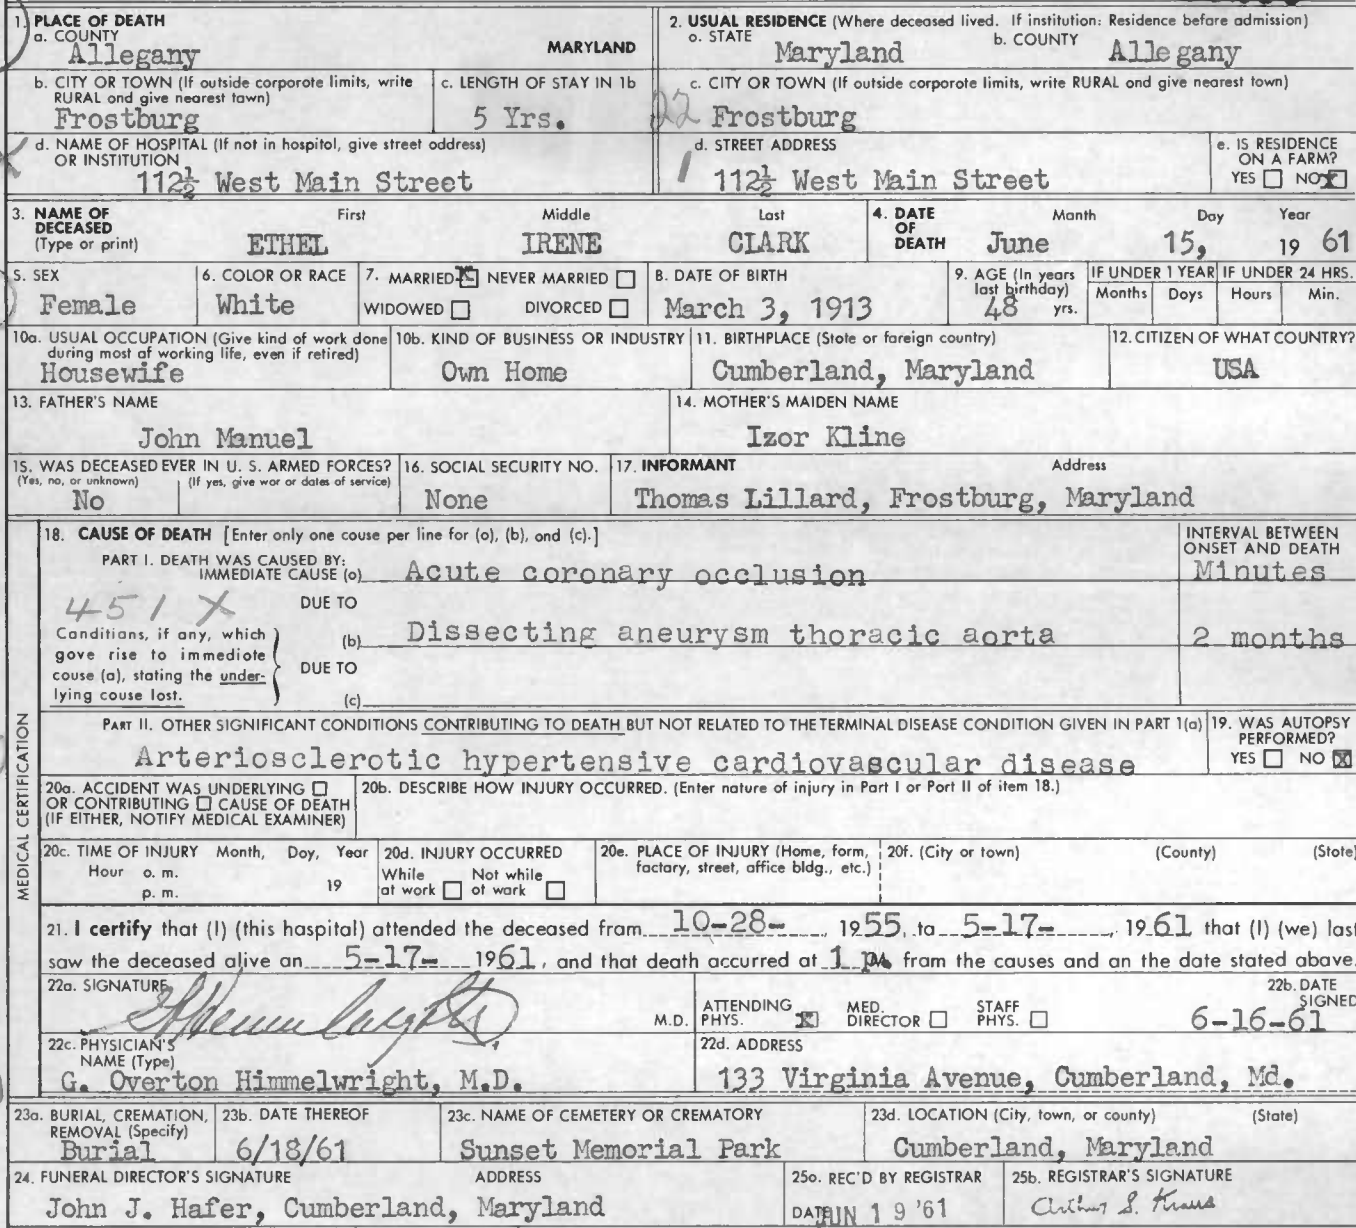 1. PLACE OF DEATH
a. COUNTY
Allegany MARYLAND
2. USUAL RESIDENCE (Where deceased lived. If institution: Residence before admission)
a. STATE Maryland b. COUNTY Allegany
b. CITY OR TOWN (If outside corporate limits, write RURAL and give nearest town)
Frostburg
c. LENGTH OF STAY IN 1b
5 Yrs.
c. CITY OR TOWN (If outside corporate limits, write RURAL and give nearest town)
22 Frostburg
d. NAME OF HOSPITAL (If not in hospital, give street address)
OR INSTITUTION
112½ West Main Street
d. STREET ADDRESS
112½ West Main Street
e. IS RESIDENCE
ON A FARM?
YES NO X
3. NAME OF
DECEASED
(Type or print)
First Middle Last
ETHEL IRENE CLARK
4. DATE
OF
DEATH
Month Day Year
June 15, 19 61
5. SEX
Female
6. COLOR OR RACE
White
7. MARRIED X NEVER MARRIED
WIDOWED DIVORCED
8. DATE OF BIRTH
March 3, 1913
9. AGE (In years
last birthday)
48 yrs.
IF UNDER 1 YEAR IF UNDER 24 HRS.
Months Days Hours Min.
10a. USUAL OCCUPATION (Give kind of work done
during most of working life, even if retired)
Housewife
10b. KIND OF BUSINESS OR INDUSTRY
Own Home
11. BIRTHPLACE (State or foreign country)
Cumberland, Maryland
12. CITIZEN OF WHAT COUNTRY?
USA
13. FATHER'S NAME
John Manuel
14. MOTHER'S MAIDEN NAME
Izor Kline
15. WAS DECEASED EVER IN U. S. ARMED FORCES?
(Yes, no, or unknown) (If yes, give war or dates of service)
No
16. SOCIAL SECURITY NO.
None
17. INFORMANT Address
Thomas Lillard, Frostburg, Maryland
MEDICAL CERTIFICATION
18. CAUSE OF DEATH [Enter only one cause per line for (a), (b), and (c).]
INTERVAL BETWEEN
ONSET AND DEATH
PART I. DEATH WAS CAUSED BY:
IMMEDIATE CAUSE (a) Acute coronary occlusion Minutes
451 X DUE TO
Conditions, if any, which
gave rise to immediate
cause (a), stating the under-
lying cause last.
(b) Dissecting aneurysm thoracic aorta 2 months
DUE TO
(c)
PART II. OTHER SIGNIFICANT CONDITIONS CONTRIBUTING TO DEATH BUT NOT RELATED TO THE TERMINAL DISEASE CONDITION GIVEN IN PART 1(a)
Arteriosclerotic hypertensive cardiovascular disease
19. WAS AUTOPSY
PERFORMED?
YES NO X
20a. ACCIDENT WAS UNDERLYING
OR CONTRIBUTING CAUSE OF DEATH
(IF EITHER, NOTIFY MEDICAL EXAMINER)
20b. DESCRIBE HOW INJURY OCCURRED. (Enter nature of injury in Part I or Part II of item 18.)
20c. TIME OF INJURY Month, Day, Year
Hour a. m.
p. m. 19
20d. INJURY OCCURRED
While Not while
at work at work
20e. PLACE OF INJURY (Home, farm,
factory, street, office bldg., etc.)
20f. (City or town) (County) (State)
21. I certify that (I) (this hospital) attended the deceased from 10-28- 1955, to 5-17- , 1961 that (I) (we) last
saw the deceased alive on 5-17- 1961, and that death occurred at 1 PM, from the causes and on the date stated above.
22a. SIGNATURE
M.D. ATTENDING
PHYS. X MED.
DIRECTOR STAFF
PHYS.
22b. DATE
SIGNED
6-16-61
22c. PHYSICIAN'S
NAME (Type)
G. Overton Himmelwright, M.D.
22d. ADDRESS
133 Virginia Avenue, Cumberland, Md.
23a. BURIAL, CREMATION,
REMOVAL (Specify)
Burial
23b. DATE THEREOF
6/18/61
23c. NAME OF CEMETERY OR CREMATORY
Sunset Memorial Park
23d. LOCATION (City, town, or county) (State)
Cumberland, Maryland
24. FUNERAL DIRECTOR'S SIGNATURE ADDRESS
John J. Hafer, Cumberland, Maryland
25a. REC'D BY REGISTRAR
DATE JUN 19 '61
25b. REGISTRAR'S SIGNATURE
Arthur S. Kraus